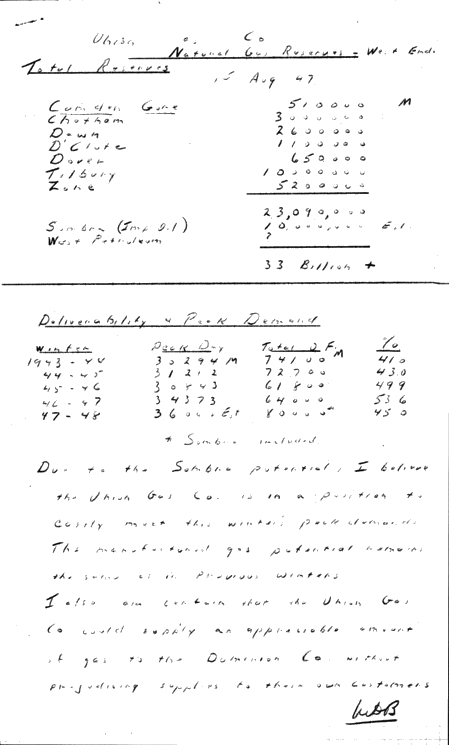 Union Co
Natural Gas Reserves - West End.
Total Reserves
15 Aug 47
Camden Gore 510000 M
Chatham 3000000
Dawn 2600000
D'Clute 1100000
Dover 650000
Tilbury 10000000
Zone 5200000
23,090,000
Sombra (Imp Oil) 10,000,000 Est.
West Petroleum ?
33 Billion +
Deliverability & Peak Demand
Winter Peak Day Total O.F. %
1943 - 44 30294 M 74100 M 41.0
44 - 45 31212 72700 43.0
45 - 46 30843 61800 49.9
46 - 47 34373 64000 53.6
47 - 48 36000 Est 80000* 45.0
* Sombra included
Due to the Sombra potential, I believe
the Union Gas Co. is in a position to
easily meet this winter's peak demands.
The manufactured gas potential remains
the same as in previous winters
I also am certain that the Union Gas
Co could supply an appreciable amount
of gas to the Dominion Co. without
prejudicing supplies to their own customers